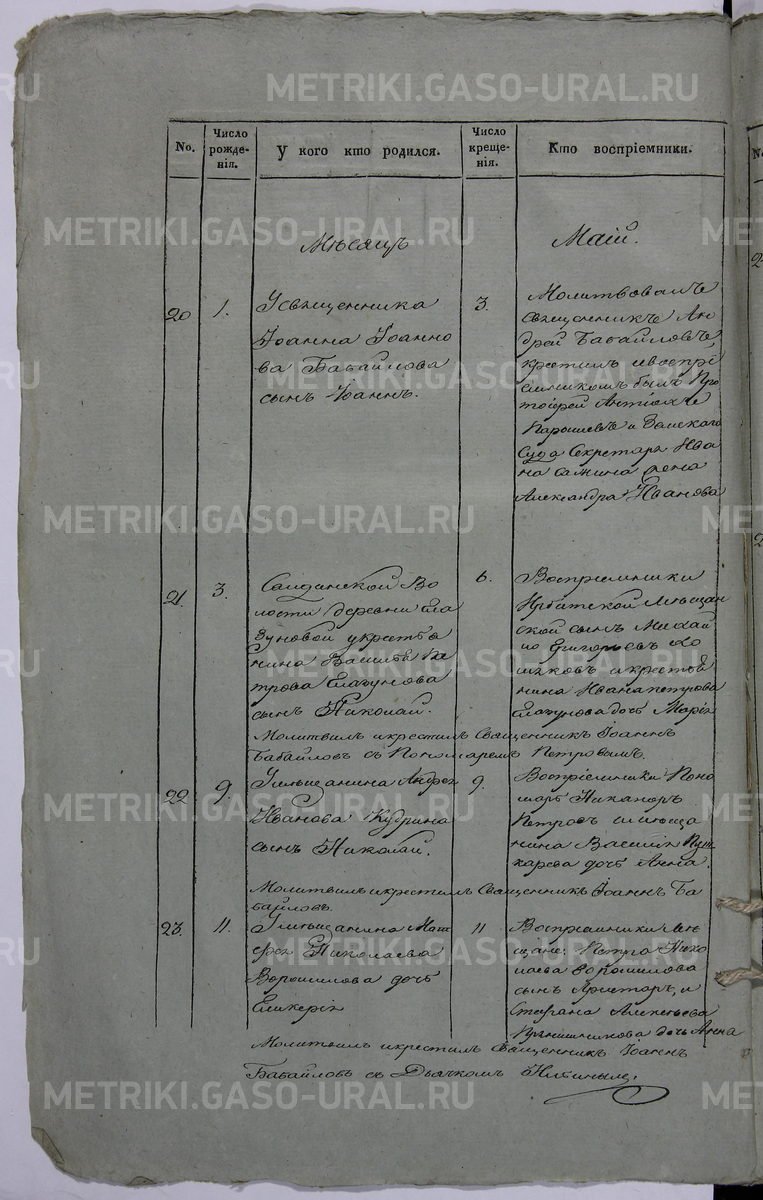 METRIKI.GASO-URAL.RU
No.
Число рожде-нія.
У кого кто родился.
Число креще-нія.
Кто воспріемники.
Мѣсяцъ
Маій.
20
1.
Усвященника
Іоанна Іоанно
ва Бабайлова
сынъ Іоаннъ.
3.
Молитвовалъ
священникъ Ан
дрей Бабайловъ,
крестилъ ивоспрі
емникомъ былъ Про
тоіерей
и Земскаго
Суда Секретаря Ива
на жена
Александра Иванова
21.
3.
Волости деревни Ела
зуновой укрестья
нина Василья Пе
трова Елагунова
сынъ Николай.
6.
Воспріемники
Ирбитской Мѣщан
ской сынъ Михай
ло Григорьевъ
икрестья
нина Ивана петрова
Елагунова дочь Марія
Молитвилъ икрестилъ Священникъ Іоаннъ
Бабайловъ съ Пономаремъ Петровымъ.
22
9.
Умѣщанина Андрея
Иванова Кудрина
сынъ Николай.
9.
Воспріемники Поно
марь Никаноръ
Петровъ имѣща
нина Василія Пуш
карева дочь Анна.
Молитвилъ икрестилъ Священникъ Іоаннъ Ба
байловъ.
23.
11.
Умѣщанина Мат
фея Николаева
Ворошилова дочь
Гликерія
11
Воспріемники Мѣ
щане: Петра Нико
лаева Ворошилова
сынъ Аристархъ, и
Стефана Алексѣева
Прянишникова дочь Анна
Молитвилъ икрестилъ Священникъ Іоаннъ
Бабайловъ съ Дьячкомъ